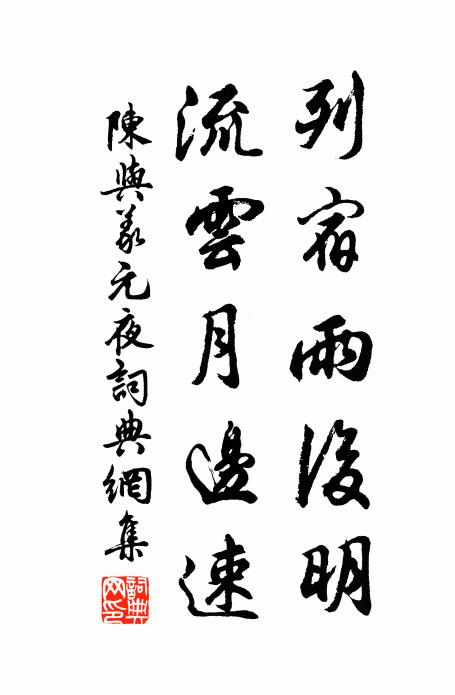 列宿雨後明
流雲月邊速
陳與義元夜詞典網集
詞典網印